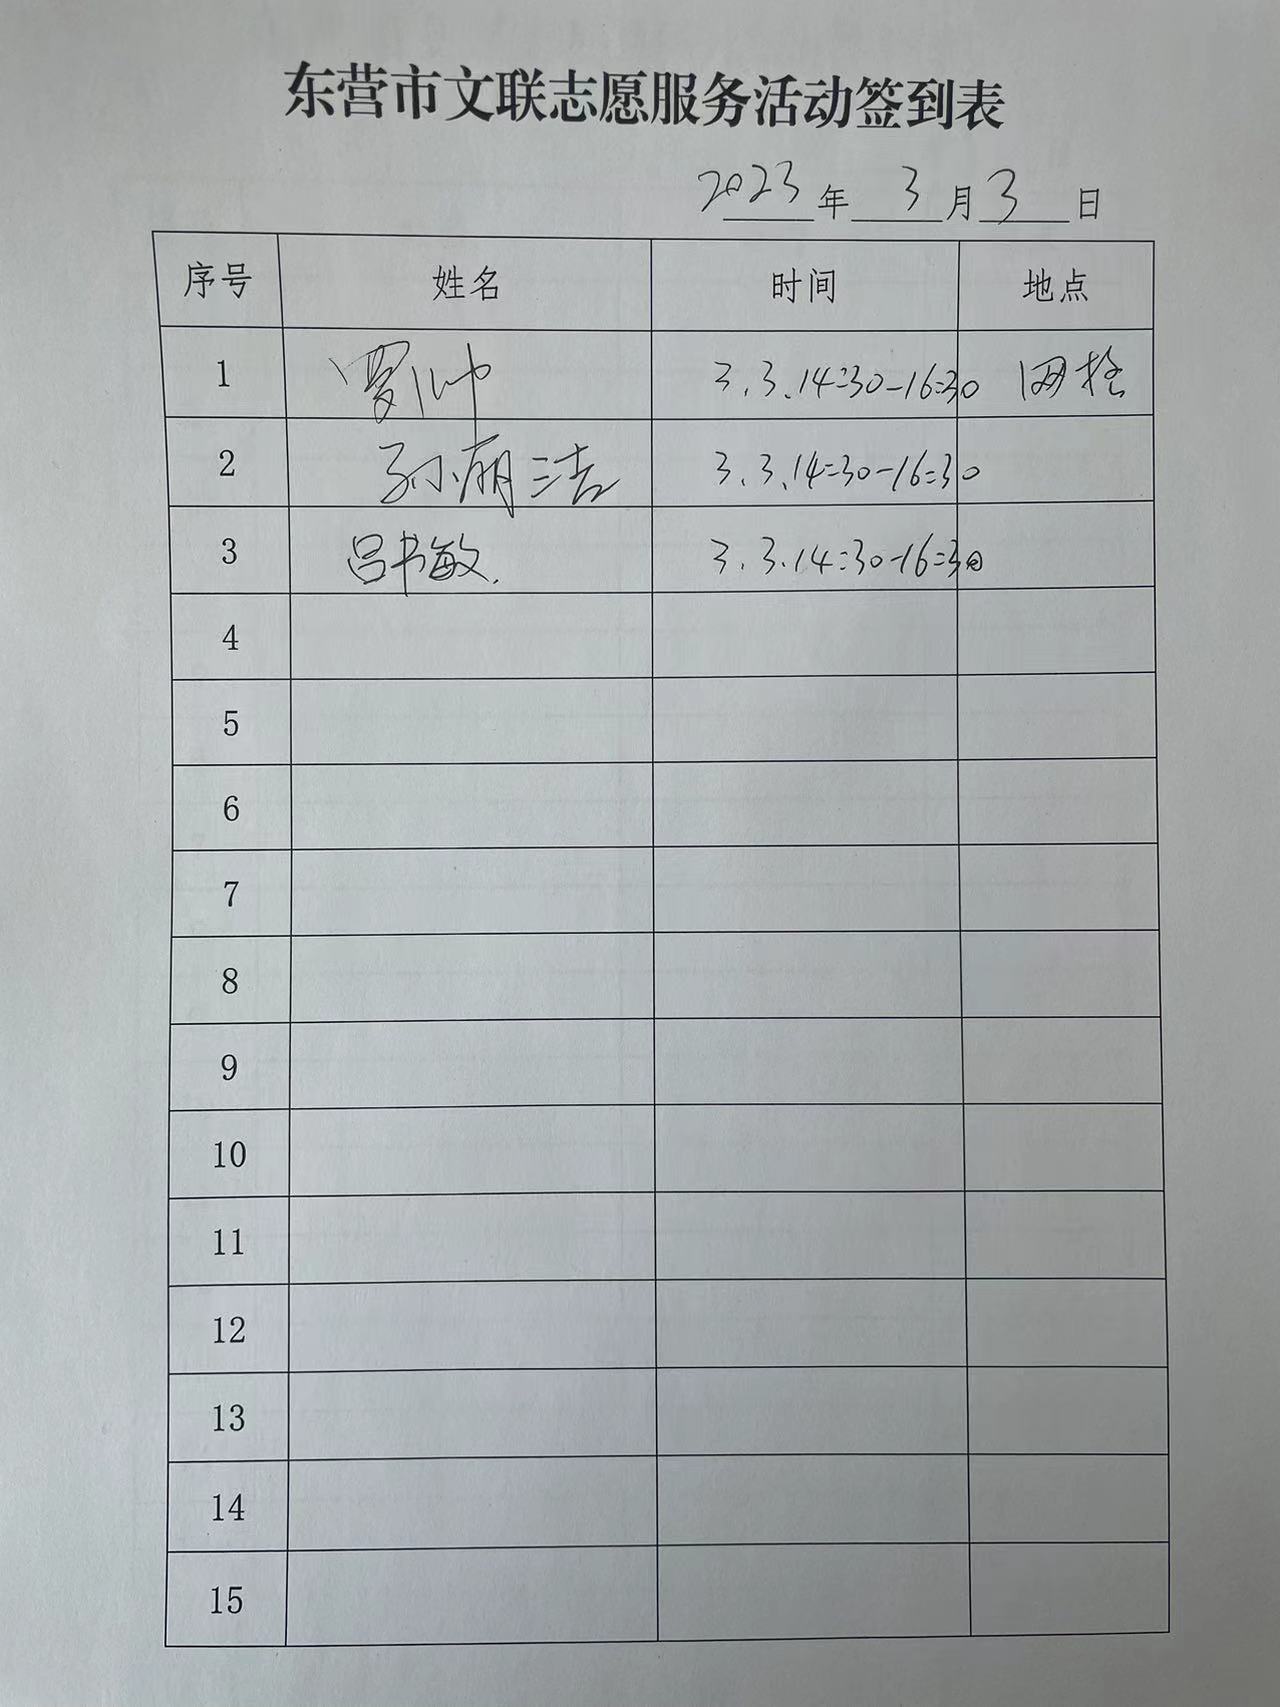 东营市文联志愿服务活动签到表
2023年 3月3日
序号 姓名 时间 地点
1 罗帅 3.3.14:30-16:30
2 孙丽洁 3.3.14:30-16:30
3 吕书敏 3.3.14:30-16:30
4
5
6
7
8
9
10
11
12
13
14
15